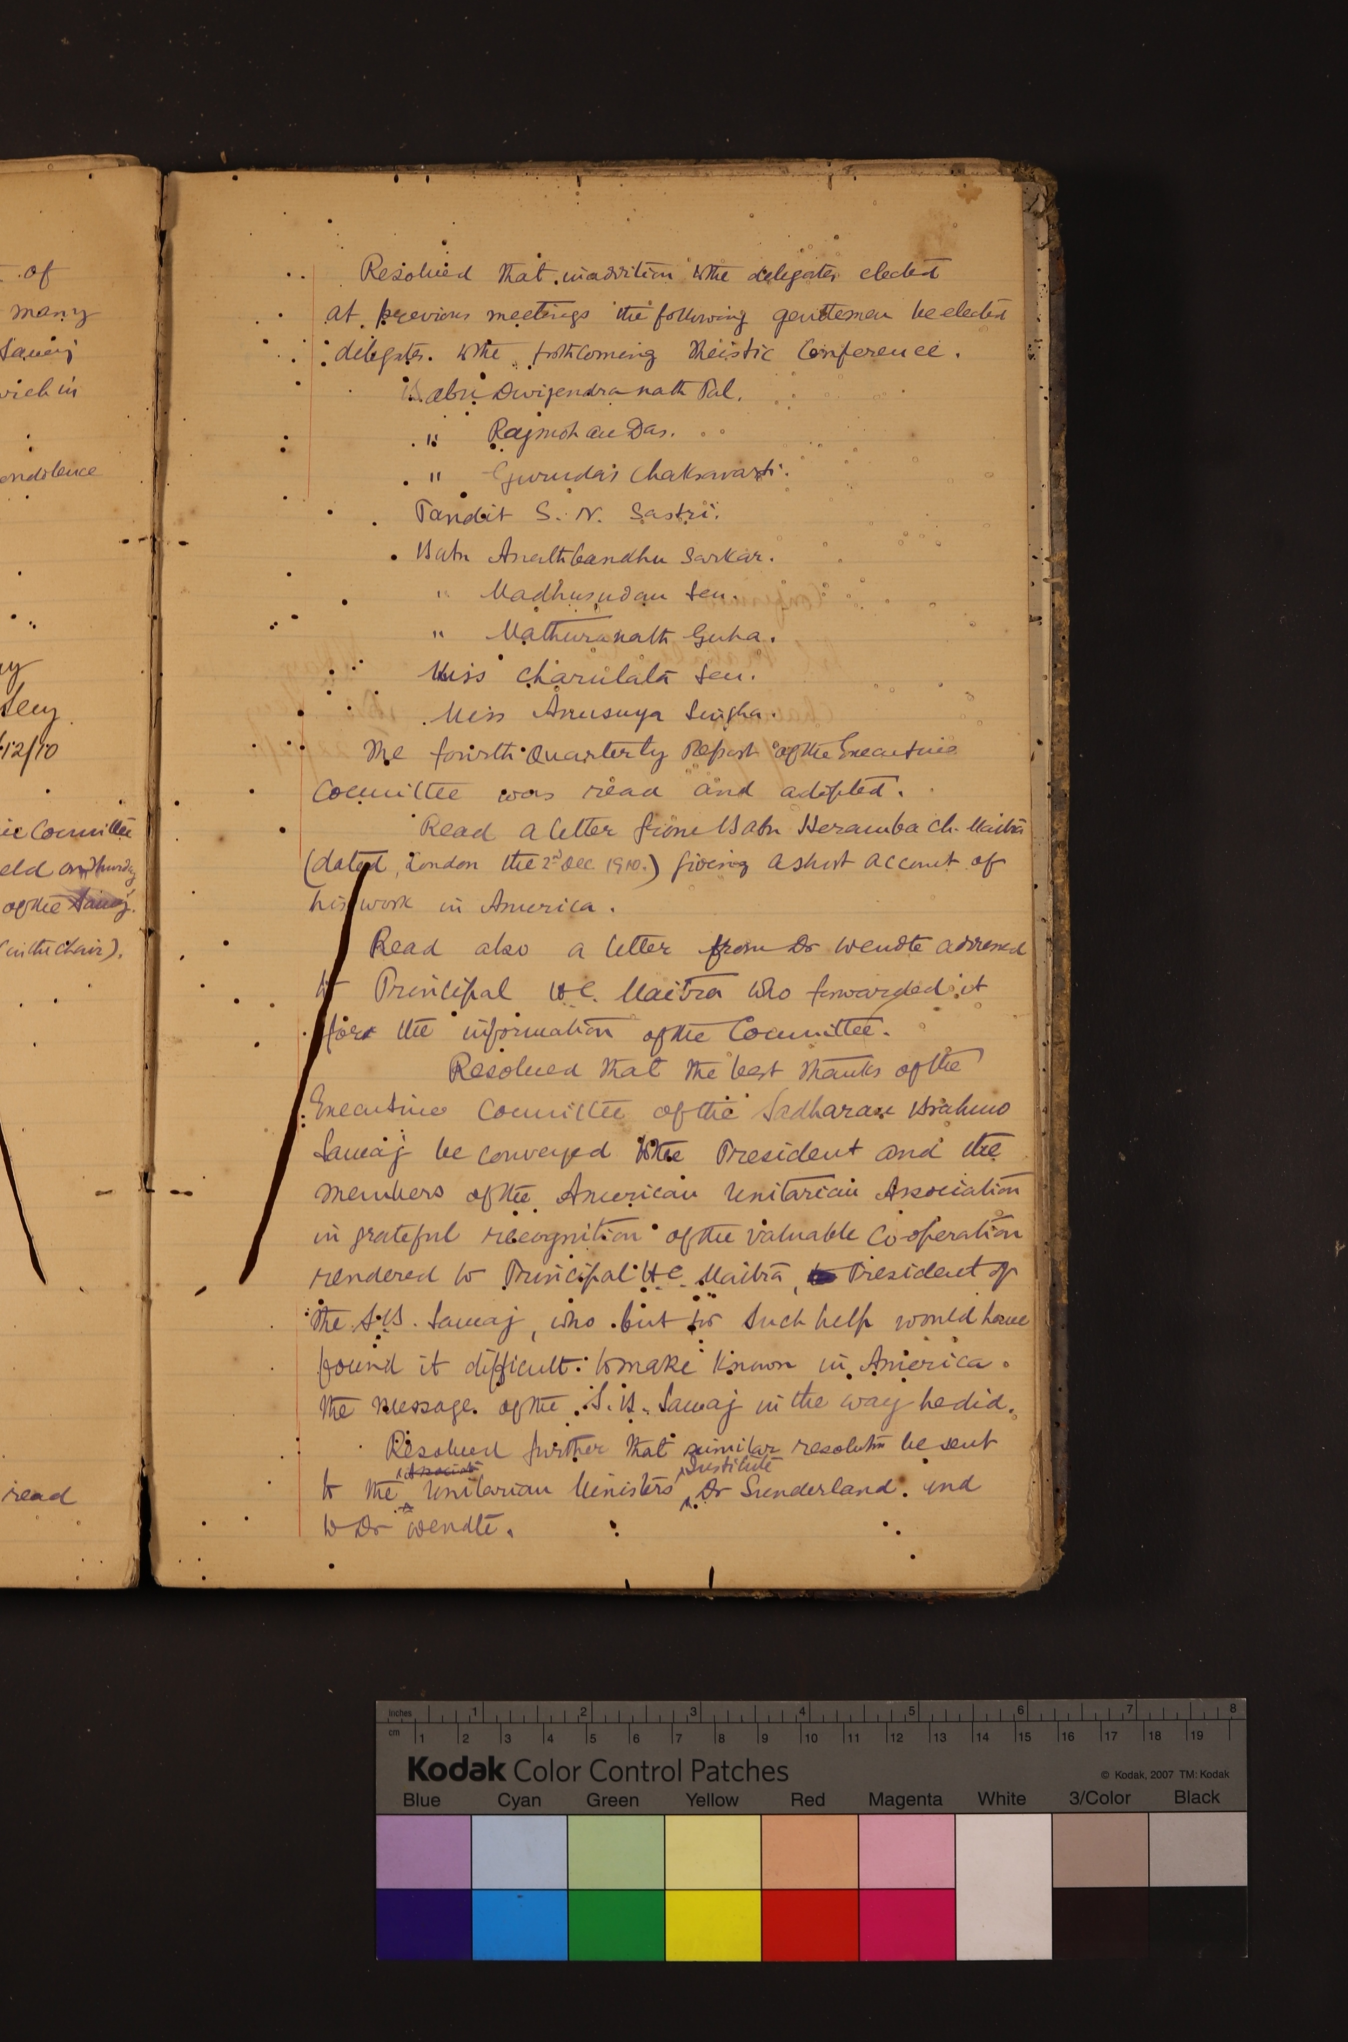 of
many
Samaj
ondolence
12/10
Committee
eld on
of the Samaj.
(in the Chair).
read
Resolved that in addition to the delegates elected
at previous meetings the following gentlemen be elected
delegates to the forthcoming Theistic Conference.
Babu Dwijendra nath Pal.
" Rajmohan Das.
" Gurudas Chakravarti.
Pandit S. N. Sastri.
Babu Anathbandhu Sarkar.
" Madhusudan Sen.
" Mathuranath Guha.
Miss Charulata Sen.
Miss Anusuya Singha.
The fourth Quarterly Report of the Executive
Committee was read and adopted.
Read a letter from Babu Heramba Ch. Maitra
(dated, London the 2nd Dec 1910.) giving a short account of
his work in America.
Read also a letter from Dr Wendte addressed
to Principal H C. Maitra who forwarded it
for the information of the Committee.
Resolved that the best thanks of the
Executive Committee of the Sadharan Brahmo
Samaj be conveyed to the President and the
members of the American Unitarian Association
in grateful recognition of the valuable Co-operation
rendered to Principal H C. Maitra, President of
the S. B. Samaj, who but for such help would have
found it difficult to make known in America
the message of the S. B. Samaj in the way he did.
Resolved further that similar resolution be sent
to the Unitarian Ministers Institute Dr Sunderland and
to Dr Wendte.
inches 1 2 3 4 5 6 7 8
cm 1 2 3 4 5 6 7 8 9 10 11 12 13 14 15 16 17 18 19
Kodak Color Control Patches
© Kodak, 2007 TM: Kodak
Blue Cyan Green Yellow Red Magenta White 3/Color Black